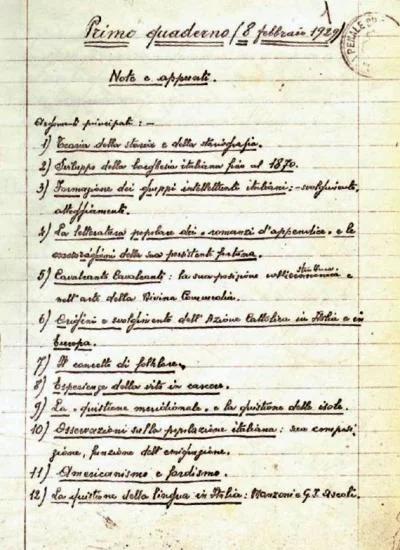 Primo quaderno (8 febbraio 1929)
Note e appunti.
Argomenti principali : –
1) Teoria della storia e della storiografia.
2) Sviluppo della borghesia italiana fino al 1870.
3) Formazione dei gruppi intellettuali italiani: – svolgimento,
atteggiamenti.
4) La letteratura popolare dei "romanzi d'appendice" e le
ragioni della sua persistente fortuna.
5) Cavalcante Cavalcanti: la sua posizione nella struttura
nell'arte della Divina Commedia.
6) Origini e svolgimento dell'Azione Cattolica in Italia e in
Europa.
7) Il concetto di folklore.
8) Esperienze della vita in carcere.
9) La "quistione meridionale" e la quistione delle isole.
10) Osservazioni sulla popolazione italiana: sua composi-
zione, funzione dell'emigrazione.
11) Americanismo e fordismo.
12) La quistione della lingua in Italia: Manzoni e G. I. Ascoli.